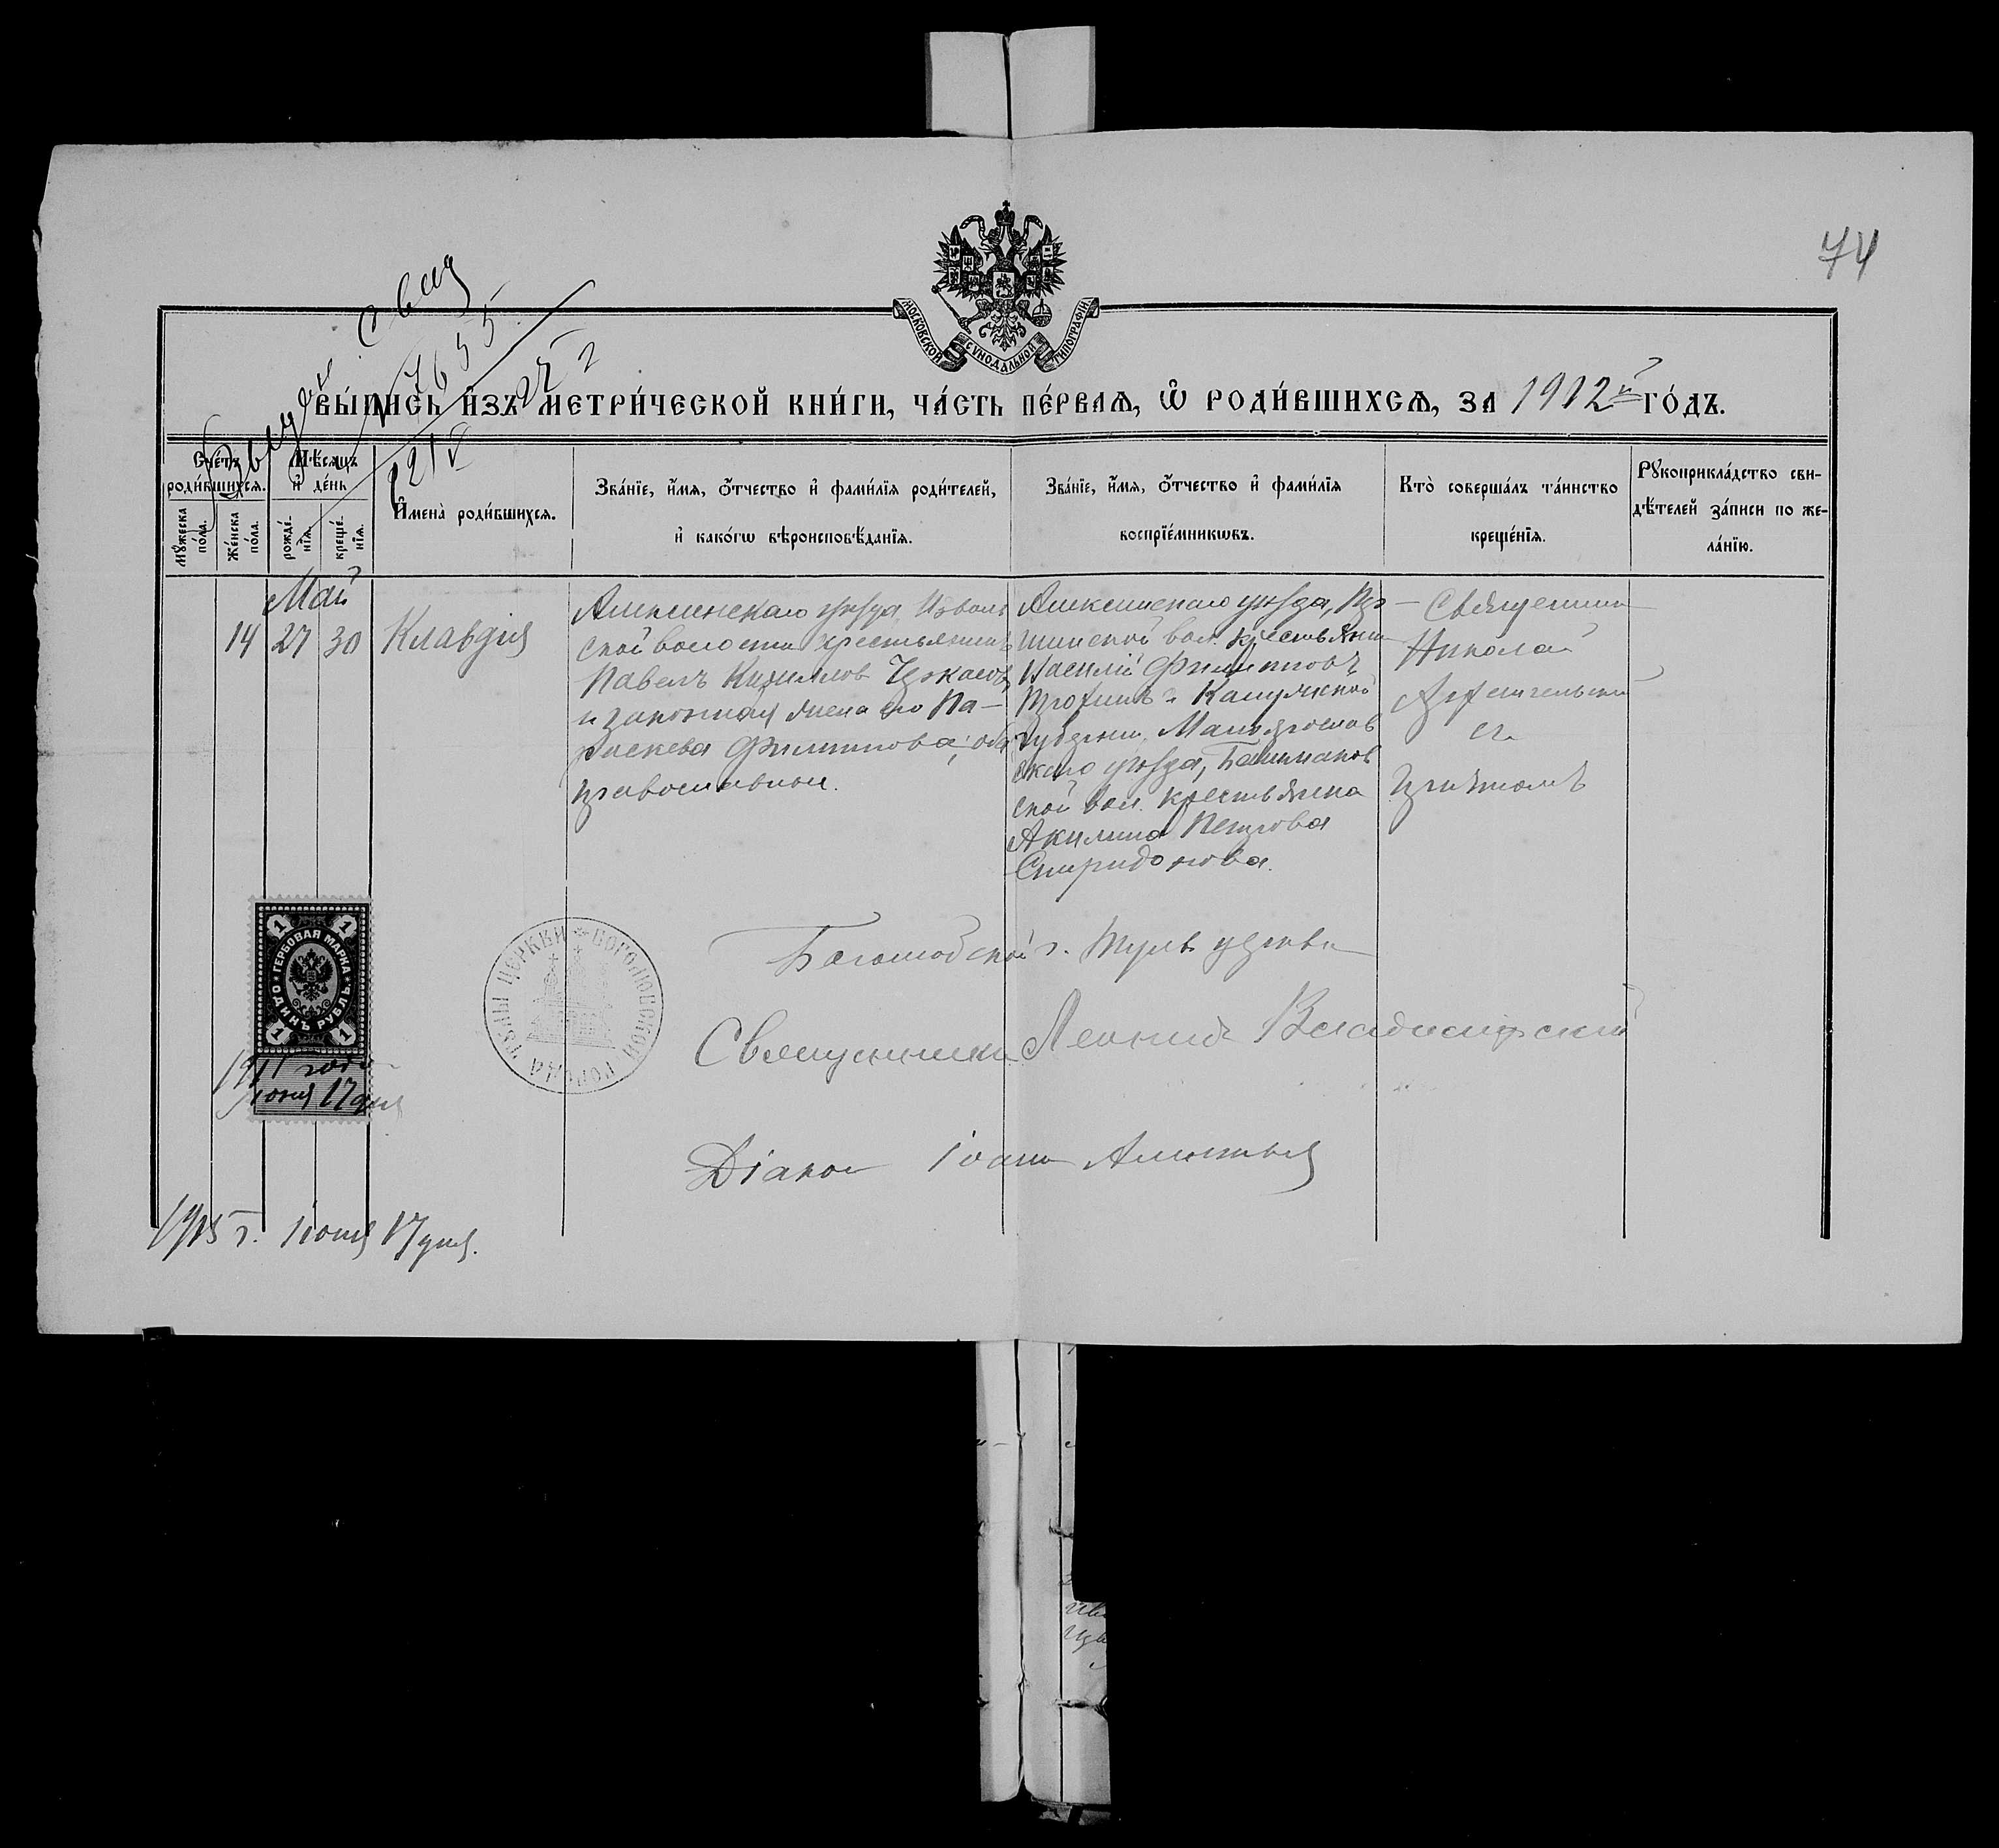 74
МОСКОВСКОЙ СѴНОДАЛЬНОЙ ТИПОГРАФІИ
ВЫ́ПИСЬ И҆ЗЪ МЕТРИ́ЧЕСКОЙ КНИ́ГИ, ЧА́СТЬ ПЕ́РВАѦ, Ѡ҆ РОДИ́ВШИХСѦ, ЗА 1912й ГО́ДЪ.
7655
Сче́тъ роди́вшихсѧ.
Мꙋ́жеска по́ла.
Же́нска по́ла.
Мѣ́сѧцъ и҆ де́нь
рожде́-нїѧ.
креще́-нїѧ.
И҆мена̀ роди́вшихсѧ.
Зва́нїе, и҆́мѧ, ѻ҆́тчество и҆ фами́лїѧ роди́телей,
и҆ како́гѡ вѣроисповѣ́данїѧ.
Зва́нїе, и҆́мѧ, ѻ҆́тчество и҆ фами́лїѧ
воспрїе́мникѡвъ.
Кто̀ соверша́лъ та́инство
креще́нїѧ.
Рꙋкоприкла́дство сви-
дѣ́телей за́писи по же-
ла́нїю.
Май
14 27 30 Клавдія
Алексинскаго уѣзда
ской волости крестьянинъ
Павелъ Кириллов
и законная жена его Па-
раскева Филиппова; оба
православные.
Алексинскаго уѣзда,
шинской вол. крестьянин
Василій Филипповъ
и Калужской
губерніи, Малоярослав
скаго уѣзда,
ской вол. крестьянка
Акилина Петрова
Спиридонова.
Священник
Николай
Архангельскій
съ
причтомъ
1 1
ГЕРБОВАЯ МАРКА
ОДИНЪ РУБЛЬ
1 1
года
іюня 17 дня
БОГОЛЮБСКОЙ ГОРОДА ТУЛЫ ЦЕРКВИ
г. Тулы церкви
Священникъ Леонидъ Владимірскій
Діакон Іоанн
1915 г. Іюня 17 дня.